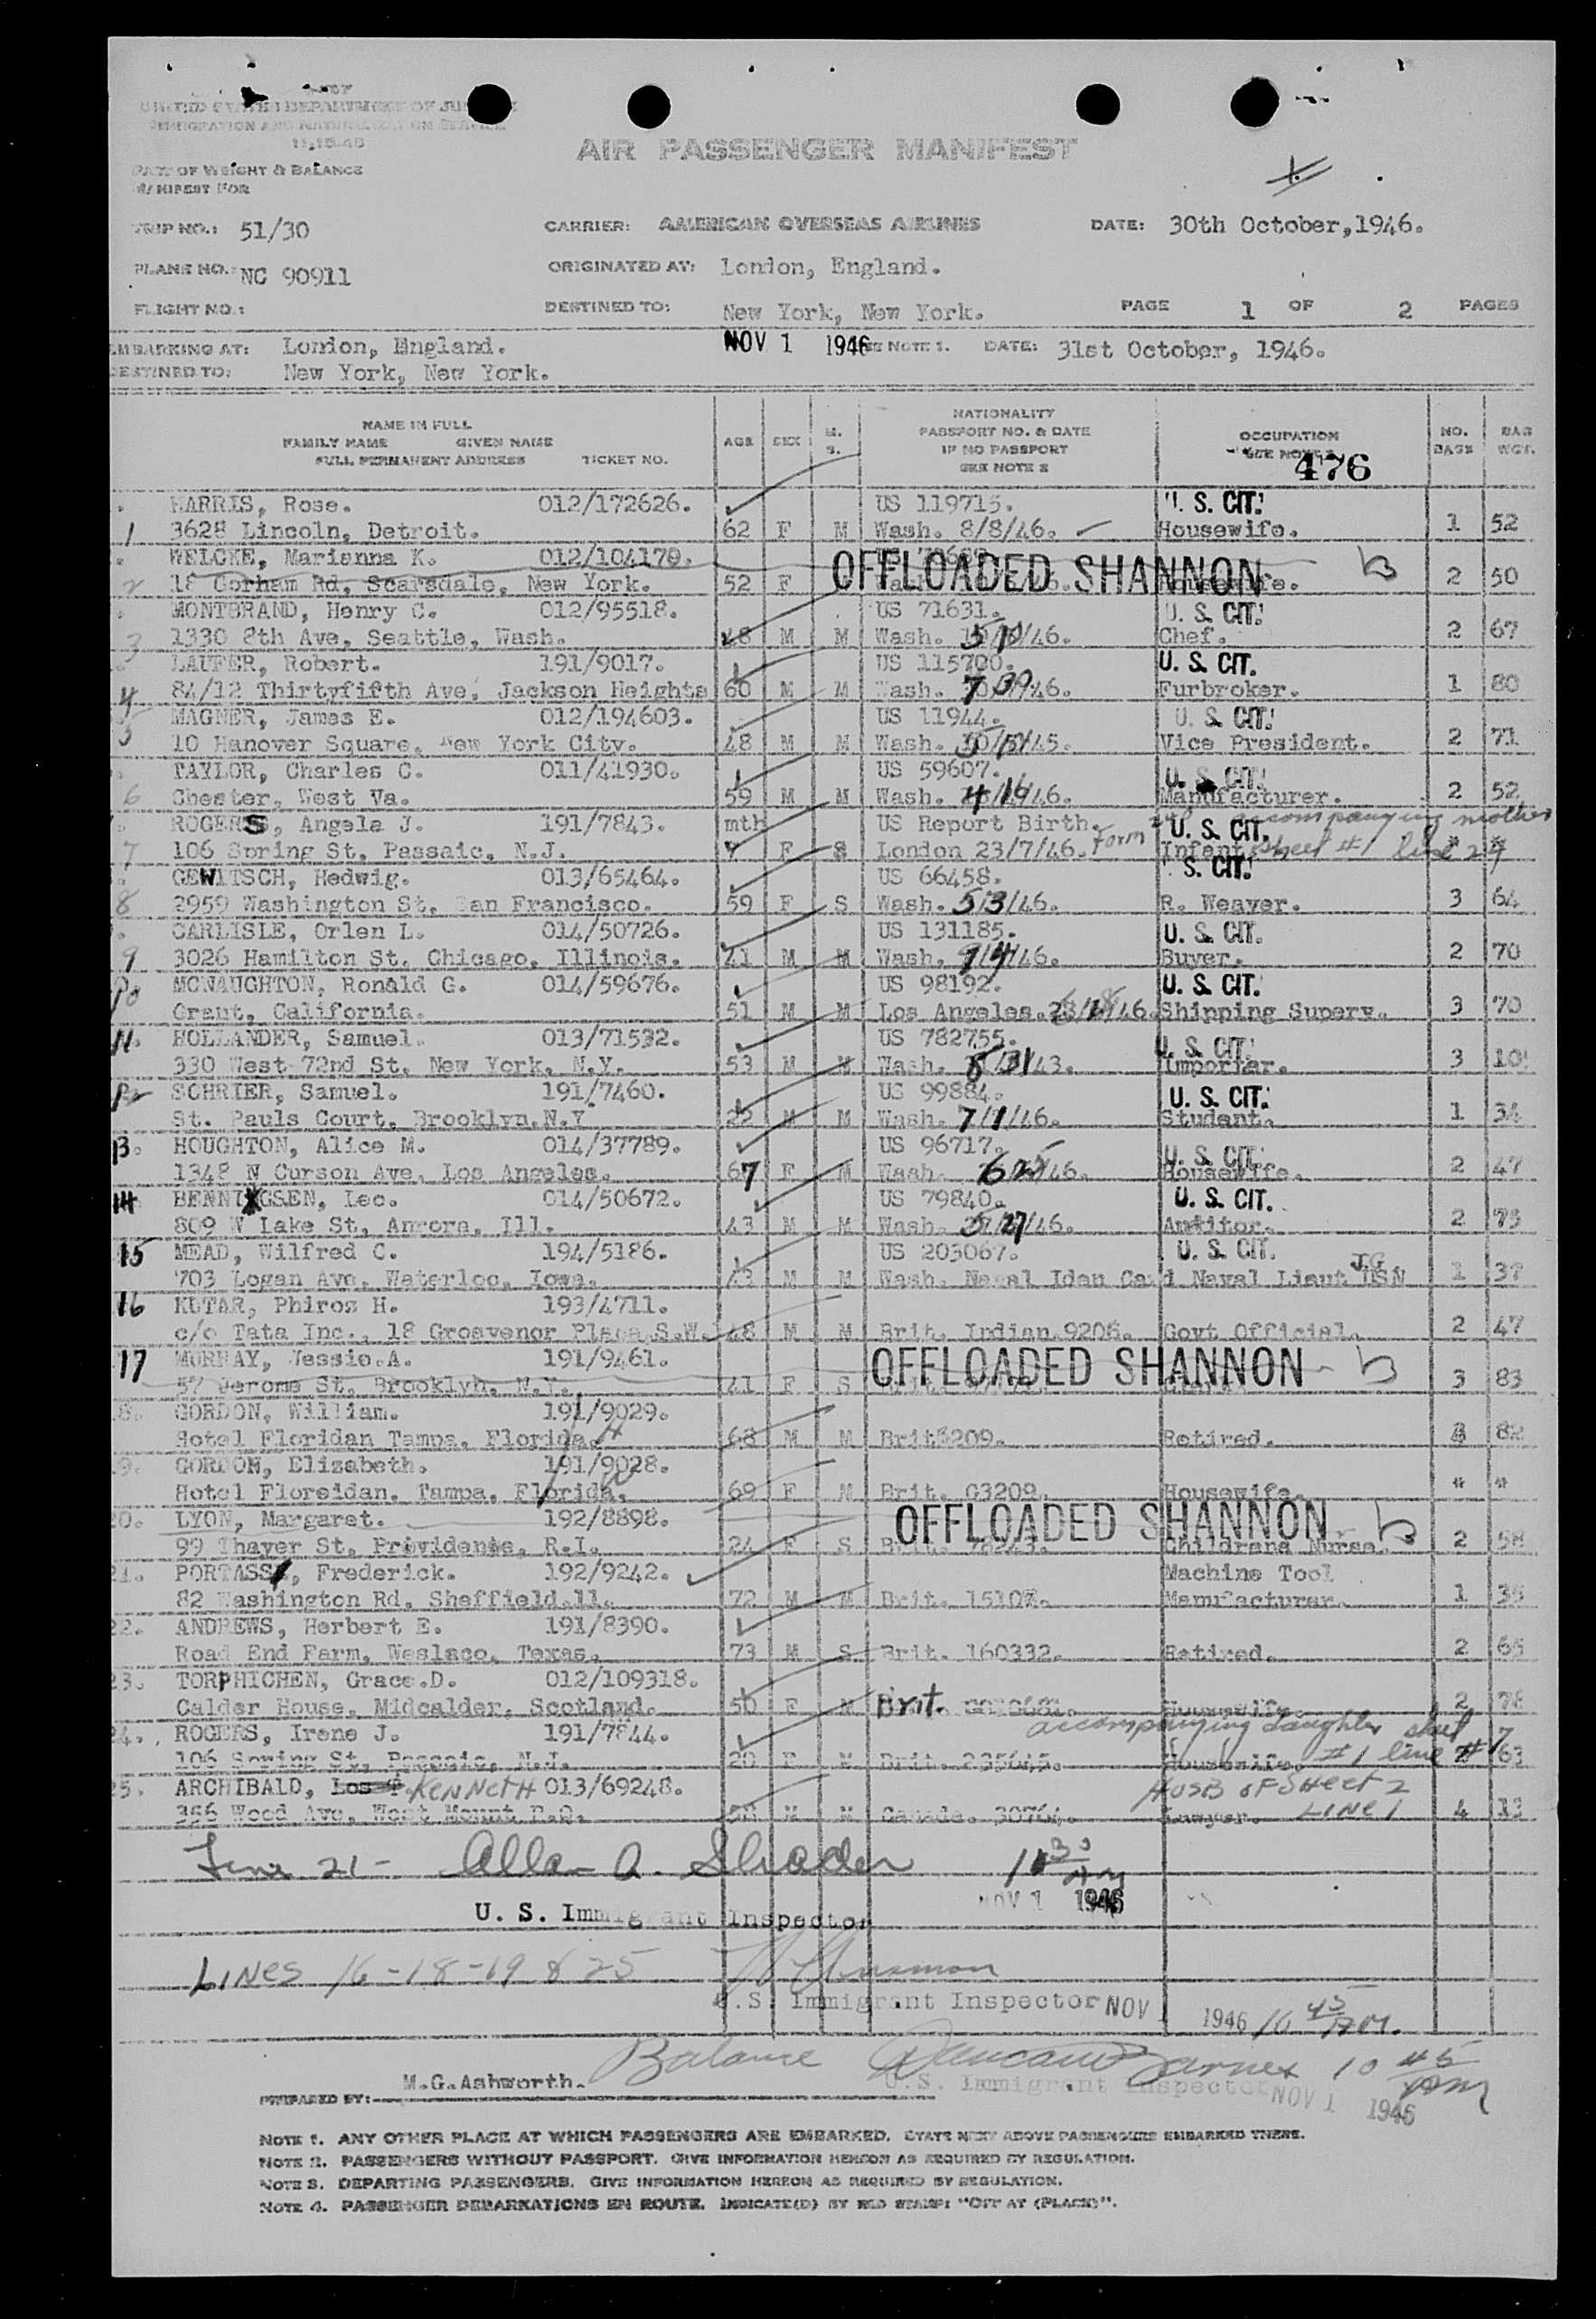 UNITED STATES DEPARTMENT OF JUSTICE
IMMIGRATION AND NATURALIZATION SERVICE
AIR PASSENGER MANIFEST
PART OF WEIGHT & BALANCE
MANIFEST FOR
TRIP NO.: 51/30 CARRIER: AMERICAN OVERSEAS AIRLINES DATE: 30th October, 1946.
PLANE NO.: NC 90911 ORIGINATED AT: London, England.
FLIGHT NO.: DESTINED TO: New York, New York. PAGE 1 OF 2 PAGES
EMBARKING AT: London, England. NOV 1 1946 SEE NOTE 1. DATE: 31st October, 1946.
DESTINED TO: New York, New York.
NAME IN FULL
FAMILY NAME GIVEN NAME
FULL PERMANENT ADDRESS TICKET NO.
AGE SEX M. S.
NATIONALITY
PASSPORT NO. & DATE
IF NO PASSPORT
SEE NOTE 2
OCCUPATION
SEE NOTE
476
NO. BAGS BAG WGT.
HARRIS, Rose. 012/172626. US 119715. U. S. CIT.
1 3628 Lincoln, Detroit. 62 F M Wash. 8/8/46. Housewife. 1 52
WELCKE, Marianna K. 012/104170. OFFLOADED SHANNON
2 18 Gorham Rd, Scarsdale, New York. 52 F 2 50
MONTBRAND, Henry C. 012/95518. US 71631. U. S. CIT.
3 1330 8th Ave, Seattle, Wash. 48 M M Wash. /46. Chef. 2 67
LAUFER, Robert. 191/9017. US 115700. U. S. CIT.
4 84/12 Thirtyfifth Ave, Jackson Heights 60 M M Wash. 7/30/46. Furbroker. 1 80
MAGNER, James E. 012/194603. US 11944. U. S. CIT.
5 10 Hanover Square, New York City. 48 M M Wash. /45. Vice President. 2 71
TAYLOR, Charles C. 011/41930. US 59607. U. S. CIT.
6 Chester, West Va. 59 M M Wash. 4/16/46. Manufacturer. 2 52
ROGERS, Angela J. 191/7843. mth US Report Birth. Form 240 U. S. CIT. accompanying mother
7 106 Spring St, Passaic, N.J. F S London 23/7/46. Infant. sheet #1 line 24 " "
GEWITSCH, Hedwig. 013/65464. US 66458. U. S. CIT.
8 2959 Washington St, San Francisco. 59 F S Wash. 5/3/46. R. Weaver. 3 64
CARLISLE, Orlen L. 014/50726. US 131185. U. S. CIT.
9 3026 Hamilton St, Chicago, Illinois. 41 M M Wash. 9/4/46. Buyer. 2 70
MCNAUGHTON, Ronald G. 014/59676. US 98192. U. S. CIT.
10 Grant, California. 51 M M Los Angeles. /46. Shipping Superv. 3 70
11. HOLLANDER, Samuel. 013/71532. US 782755. U. S. CIT.
330 West 72nd St, New York, N.Y. 53 M M Wash. 8/31/43. Importer. 3 10
12 SCHRIER, Samuel. 191/7460. US 99884. U. S. CIT.
St. Pauls Court, Brooklyn.N.Y 22 M M Wash. 7/1/46. Student. 1 34
13. HOUGHTON, Alice M. 014/37789. US 96717. U. S. CIT.
1348 N Curson Ave, Los Angeles. 67 F M Wash. 6/25/46. Housewife. 2 47
14 BENNINGSEN, Leo. 014/50672. US 79840. U. S. CIT.
809 W Lake St, Aurora, Ill. 43 M M Wash. /27/46. Auditor. 2 73
15 MEAD, Wilfred C. 194/5186. US 203067. U. S. CIT.
703 Logan Ave, Waterloo, Iowa. 43 M M Wash. Naval Iden Card Naval Lieut JG USN 1 37
16 KUTAR, Phiroz H. 193/4711.
c/o Tata Inc., 18 Grosvenor Place,S.W. 48 M M Brit. Indian.9208. Govt Official. 2 47
17 MURRAY, Jessie.A. 191/9461. OFFLOADED SHANNON
57 Jerome St, Brooklyn, N.Y. 41 F S 3 83
18. GORDON, William. 191/9029.
Hotel Floridan Tampa, Florida. H 68 M M Brit 3209. Retired. 3 82
19. GORDON, Elizabeth. 191/9028.
Hotel Floreidan, Tampa, Florida. W 69 F M Brit. 03209. Housewife. " "
20. LYON, Margaret. 192/8898. OFFLOADED SHANNON
99 Thayer St, Providente, R.I. 24 F S Childrens Nurse. 2 58
21. PORTASS, Frederick. 192/9242. Machine Tool
82 Washington Rd, Sheffield.11. 72 M M Brit. 15107. Manufacturer. 1 35
22. ANDREWS, Herbert E. 191/8390.
Road End Farm, Weslaco, Texas. 73 M S Brit. 160332. Retired. 2 65
23. TORPHICHEN, Grace.D. 012/109318.
Calder House, Midcalder, Scotland. 50 F M Brit. Housewife. 2 78
24. ROGERS, Irene J. 191/7844. accompanying daughter sheet
106 Spring St, Passaic, N.J. 20 F M Brit. 235645. Housewife. #1 line #7 63
25. ARCHIBALD, KENNETH 013/69248. HUSB OF SHEET 2
356 Wood Ave, West Mount P.Q. 58 M M Canada. 30764. Lawyer. LINE 1 4 13
Line 21 - Allan A. Shader 10 30 AM
U. S. Immigrant Inspector NOV 1 1946
LINES 16-18-19 & 25
U.S. Immigrant Inspector NOV 1 1946 10 45 AM.
Balance Duncan Barnes 10 45 AM
M.G.Ashworth. U.S. Immigrant Inspector NOV 1 1946
PREPARED BY:
NOTE 1. ANY OTHER PLACE AT WHICH PASSENGERS ARE EMBARKED. STATE NEXT ABOVE PASSENGERS EMBARKED THERE.
NOTE 2. PASSENGERS WITHOUT PASSPORT. GIVE INFORMATION HEREON AS REQUIRED BY REGULATION.
NOTE 3. DEPARTING PASSENGERS. GIVE INFORMATION HEREON AS REQUIRED BY REGULATION.
NOTE 4. PASSENGER DEBARKATIONS EN ROUTE. INDICATE(D) BY RED STAMP: "OFF AT (PLACE)".